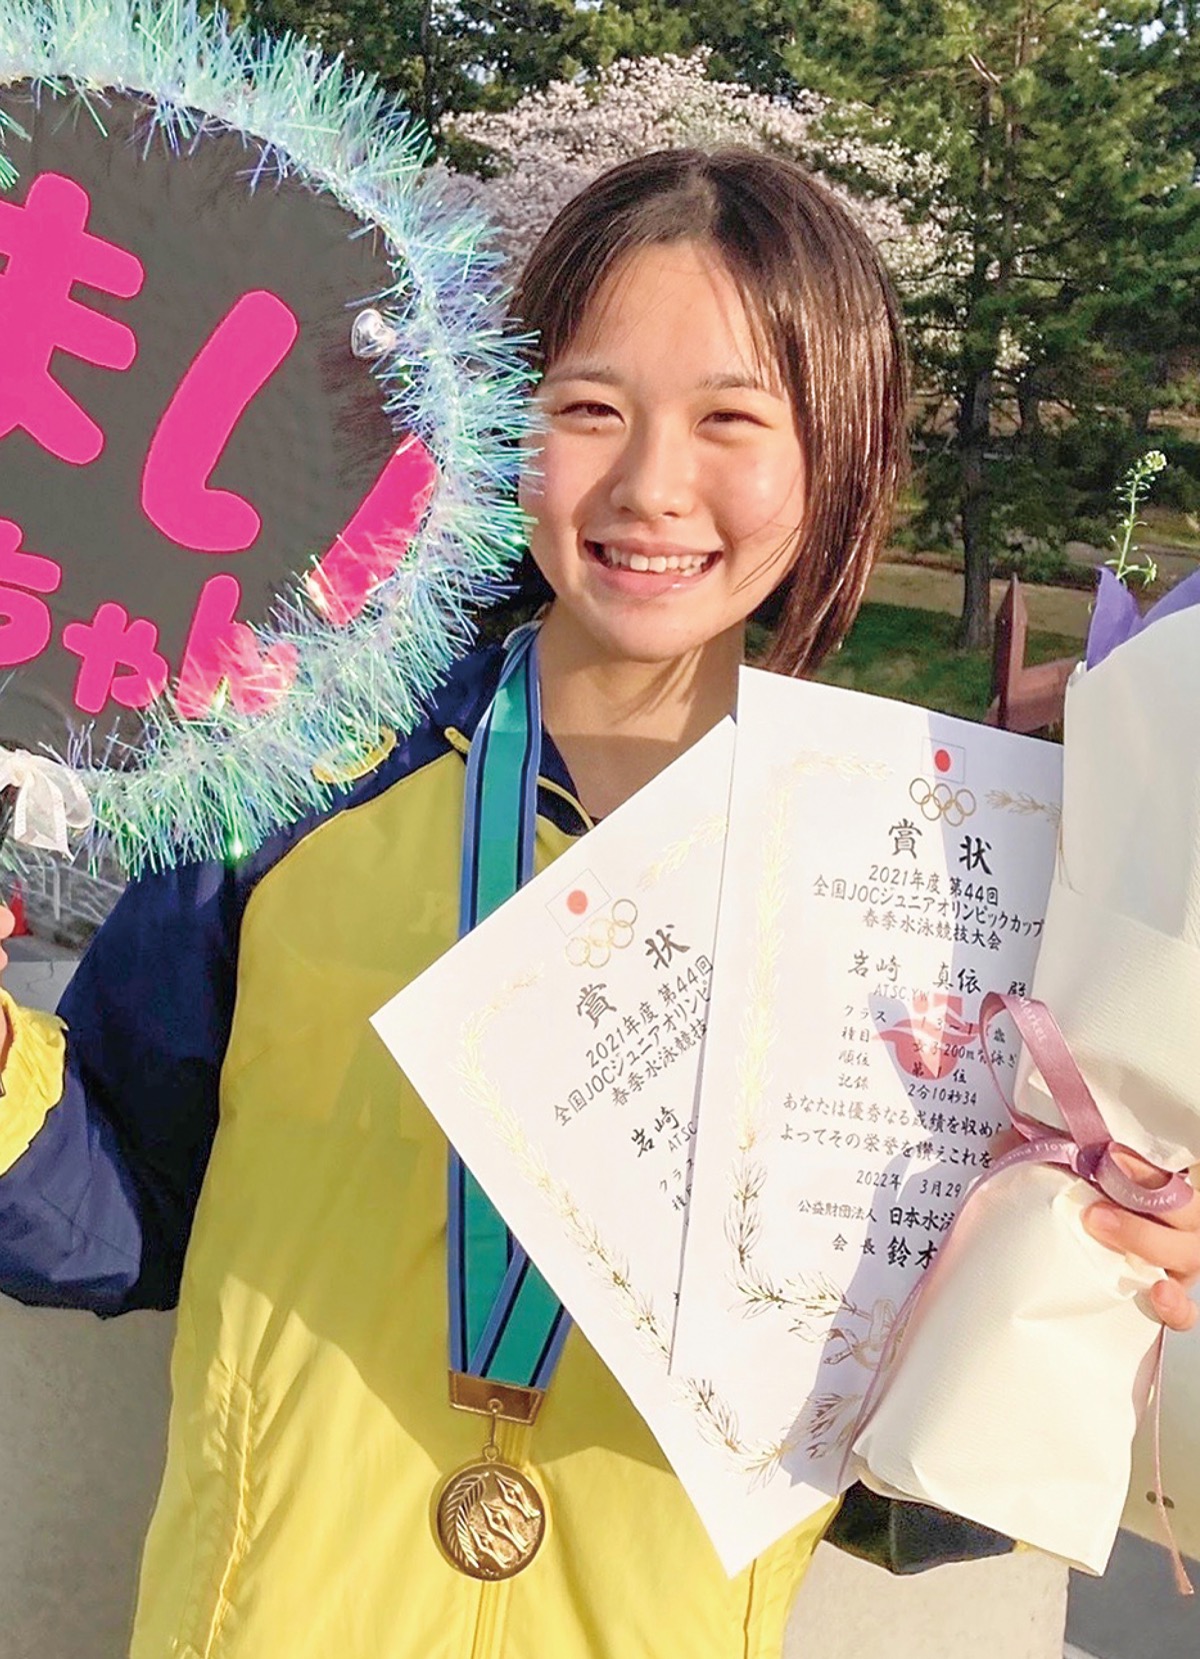 まい
ちゃん
賞状
2021年度 第44回
全国JOCジュニアオリンピ
春季水泳競技
岩崎
ATSC
クラス
賞状
2021年度 第44回
全国JOCジュニアオリンピックカップ
春季水泳競技大会
岩崎 真依 殿
ATSC.YW
クラス 13-1 歳
種目 女子200m 泳ぎ
順位 第1位
記録 2分10秒34
あなたは優秀なる成績を収め
よってその栄誉を讃えこれを
2022年 3月29
公益財団法人 日本水泳
会長 鈴木
Market